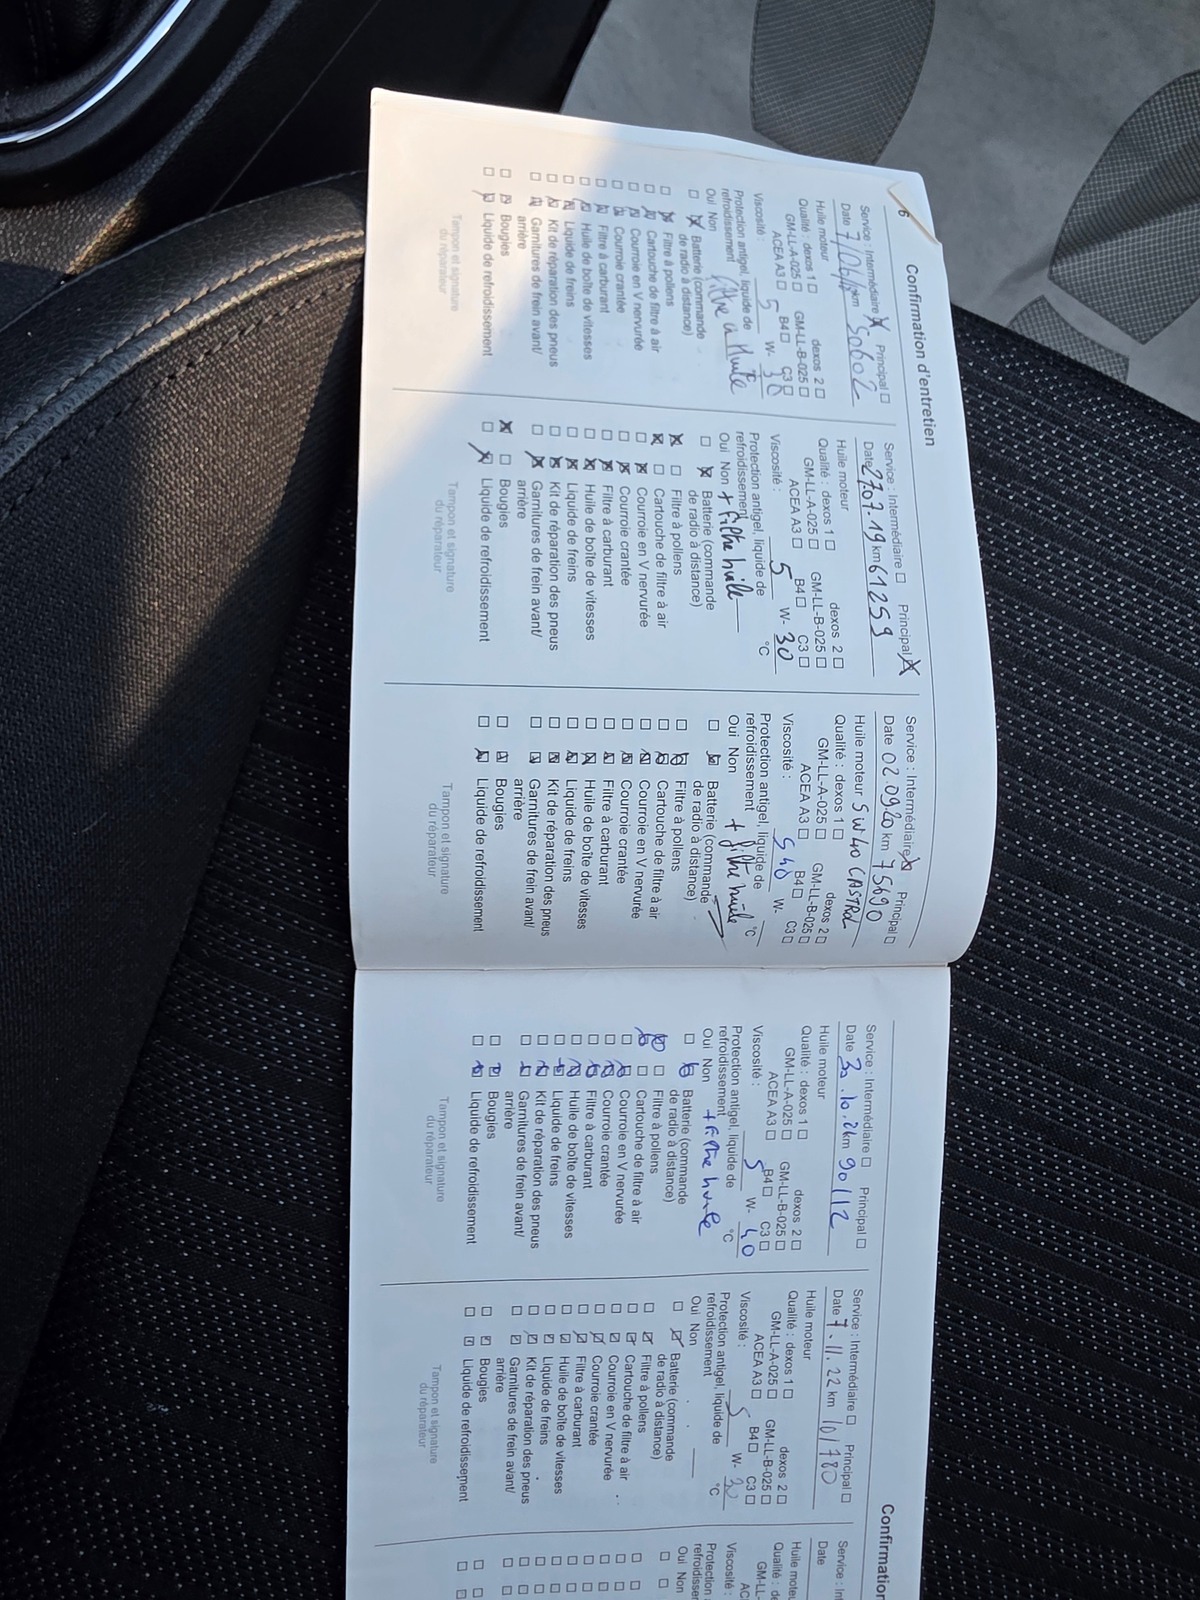 6
Confirmation d'entretien
Service : Intermédiaire ☒ Principal ☐
Date 7/06/ km 50602
Huile moteur
Qualité : dexos 1 ☐ dexos 2 ☐
GM-LL-A-025 ☐ GM-LL-B-025 ☐
ACEA A3 ☐ B4 ☐ C3 ☐
Viscosité : 5 W- 30
Protection antigel, liquide de
refroidissement °C
Oui Non filtre a Huile
☐ ☒ Batterie (commande
de radio à distance)
☐ ☒ Filtre à pollens
☐ ☒ Cartouche de filtre à air
☐ ☒ Courroie en V nervurée
☐ ☒ Courroie crantée
☐ ☒ Filtre à carburant
☐ ☒ Huile de boîte de vitesses
☐ ☒ Liquide de freins
☐ ☒ Kit de réparation des pneus
☐ ☒ Garnitures de frein avant/
arrière
☐ ☒ Bougies
☐ ☒ Liquide de refroidissement
Tampon et signature
du réparateur
Service : Intermédiaire ☐ Principal ☒
Date 27.07.19 km 61259
Huile moteur
Qualité : dexos 1 ☐ dexos 2 ☐
GM-LL-A-025 ☐ GM-LL-B-025 ☐
ACEA A3 ☐ B4 ☐ C3 ☐
Viscosité : 5 W- 30
Protection antigel, liquide de
refroidissement °C
Oui Non + filtre huile
☐ ☒ Batterie (commande
de radio à distance)
☒ ☐ Filtre à pollens
☒ ☐ Cartouche de filtre à air
☐ ☒ Courroie en V nervurée
☐ ☒ Courroie crantée
☐ ☒ Filtre à carburant
☐ ☒ Huile de boîte de vitesses
☐ ☒ Liquide de freins
☐ ☒ Kit de réparation des pneus
☐ ☒ Garnitures de frein avant/
arrière
☒ ☐ Bougies
☐ ☒ Liquide de refroidissement
Tampon et signature
du réparateur
Service : Intermédiaire ☒ Principal ☐
Date 02.09.20 km 75690
Huile moteur 5W40 CASTROL
Qualité : dexos 1 ☐ dexos 2 ☐
GM-LL-A-025 ☐ GM-LL-B-025 ☐
ACEA A3 ☐ B4 ☐ C3 ☐
Viscosité : 5 40 W-
Protection antigel, liquide de
refroidissement °C
Oui Non + filtre huile
☐ ☒ Batterie (commande
de radio à distance)
☐ ☒ Filtre à pollens
☐ ☒ Cartouche de filtre à air
☐ ☒ Courroie en V nervurée
☐ ☒ Courroie crantée
☐ ☒ Filtre à carburant
☐ ☒ Huile de boîte de vitesses
☐ ☒ Liquide de freins
☐ ☒ Kit de réparation des pneus
☐ ☒ Garnitures de frein avant/
arrière
☐ ☒ Bougies
☐ ☒ Liquide de refroidissement
Tampon et signature
du réparateur
Confirmation
Service : Intermédiaire ☐ Principal ☐
Date 30.10.21 km 90112
Huile moteur
Qualité : dexos 1 ☐ dexos 2 ☐
GM-LL-A-025 ☐ GM-LL-B-025 ☐
ACEA A3 ☐ B4 ☐ C3 ☐
Viscosité : 5 W- 40
Protection antigel, liquide de
refroidissement °C
Oui Non + filtre huile
☐ ☒ Batterie (commande
de radio à distance)
☒ ☐ Filtre à pollens
☒ ☐ Cartouche de filtre à air
☐ ☒ Courroie en V nervurée
☐ ☒ Courroie crantée
☐ ☒ Filtre à carburant
☐ ☒ Huile de boîte de vitesses
☐ ☒ Liquide de freins
☐ ☒ Kit de réparation des pneus
☐ ☒ Garnitures de frein avant/
arrière
☐ ☒ Bougies
☐ ☒ Liquide de refroidissement
Tampon et signature
du réparateur
Service : Intermédiaire ☐ Principal ☐
Date 7.11.22 km 101780
Huile moteur
Qualité : dexos 1 ☐ dexos 2 ☐
GM-LL-A-025 ☐ GM-LL-B-025 ☐
ACEA A3 ☐ B4 ☐ C3 ☐
Viscosité : 5 W- 30
Protection antigel, liquide de
refroidissement °C
Oui Non
☐ ☒ Batterie (commande
de radio à distance)
☐ ☒ Filtre à pollens
☐ ☒ Cartouche de filtre à air
☐ ☒ Courroie en V nervurée
☐ ☒ Courroie crantée
☐ ☒ Filtre à carburant
☐ ☒ Huile de boîte de vitesses
☐ ☒ Liquide de freins
☐ ☒ Kit de réparation des pneus
☐ ☒ Garnitures de frein avant/
arrière
☐ ☒ Bougies
☐ ☒ Liquide de refroidissement
Tampon et signature
du réparateur
Service : Int
Date
Huile moteu
Qualité : de
GM-LL-
AC
Viscosité :
Protection a
refroidisser
Oui Non